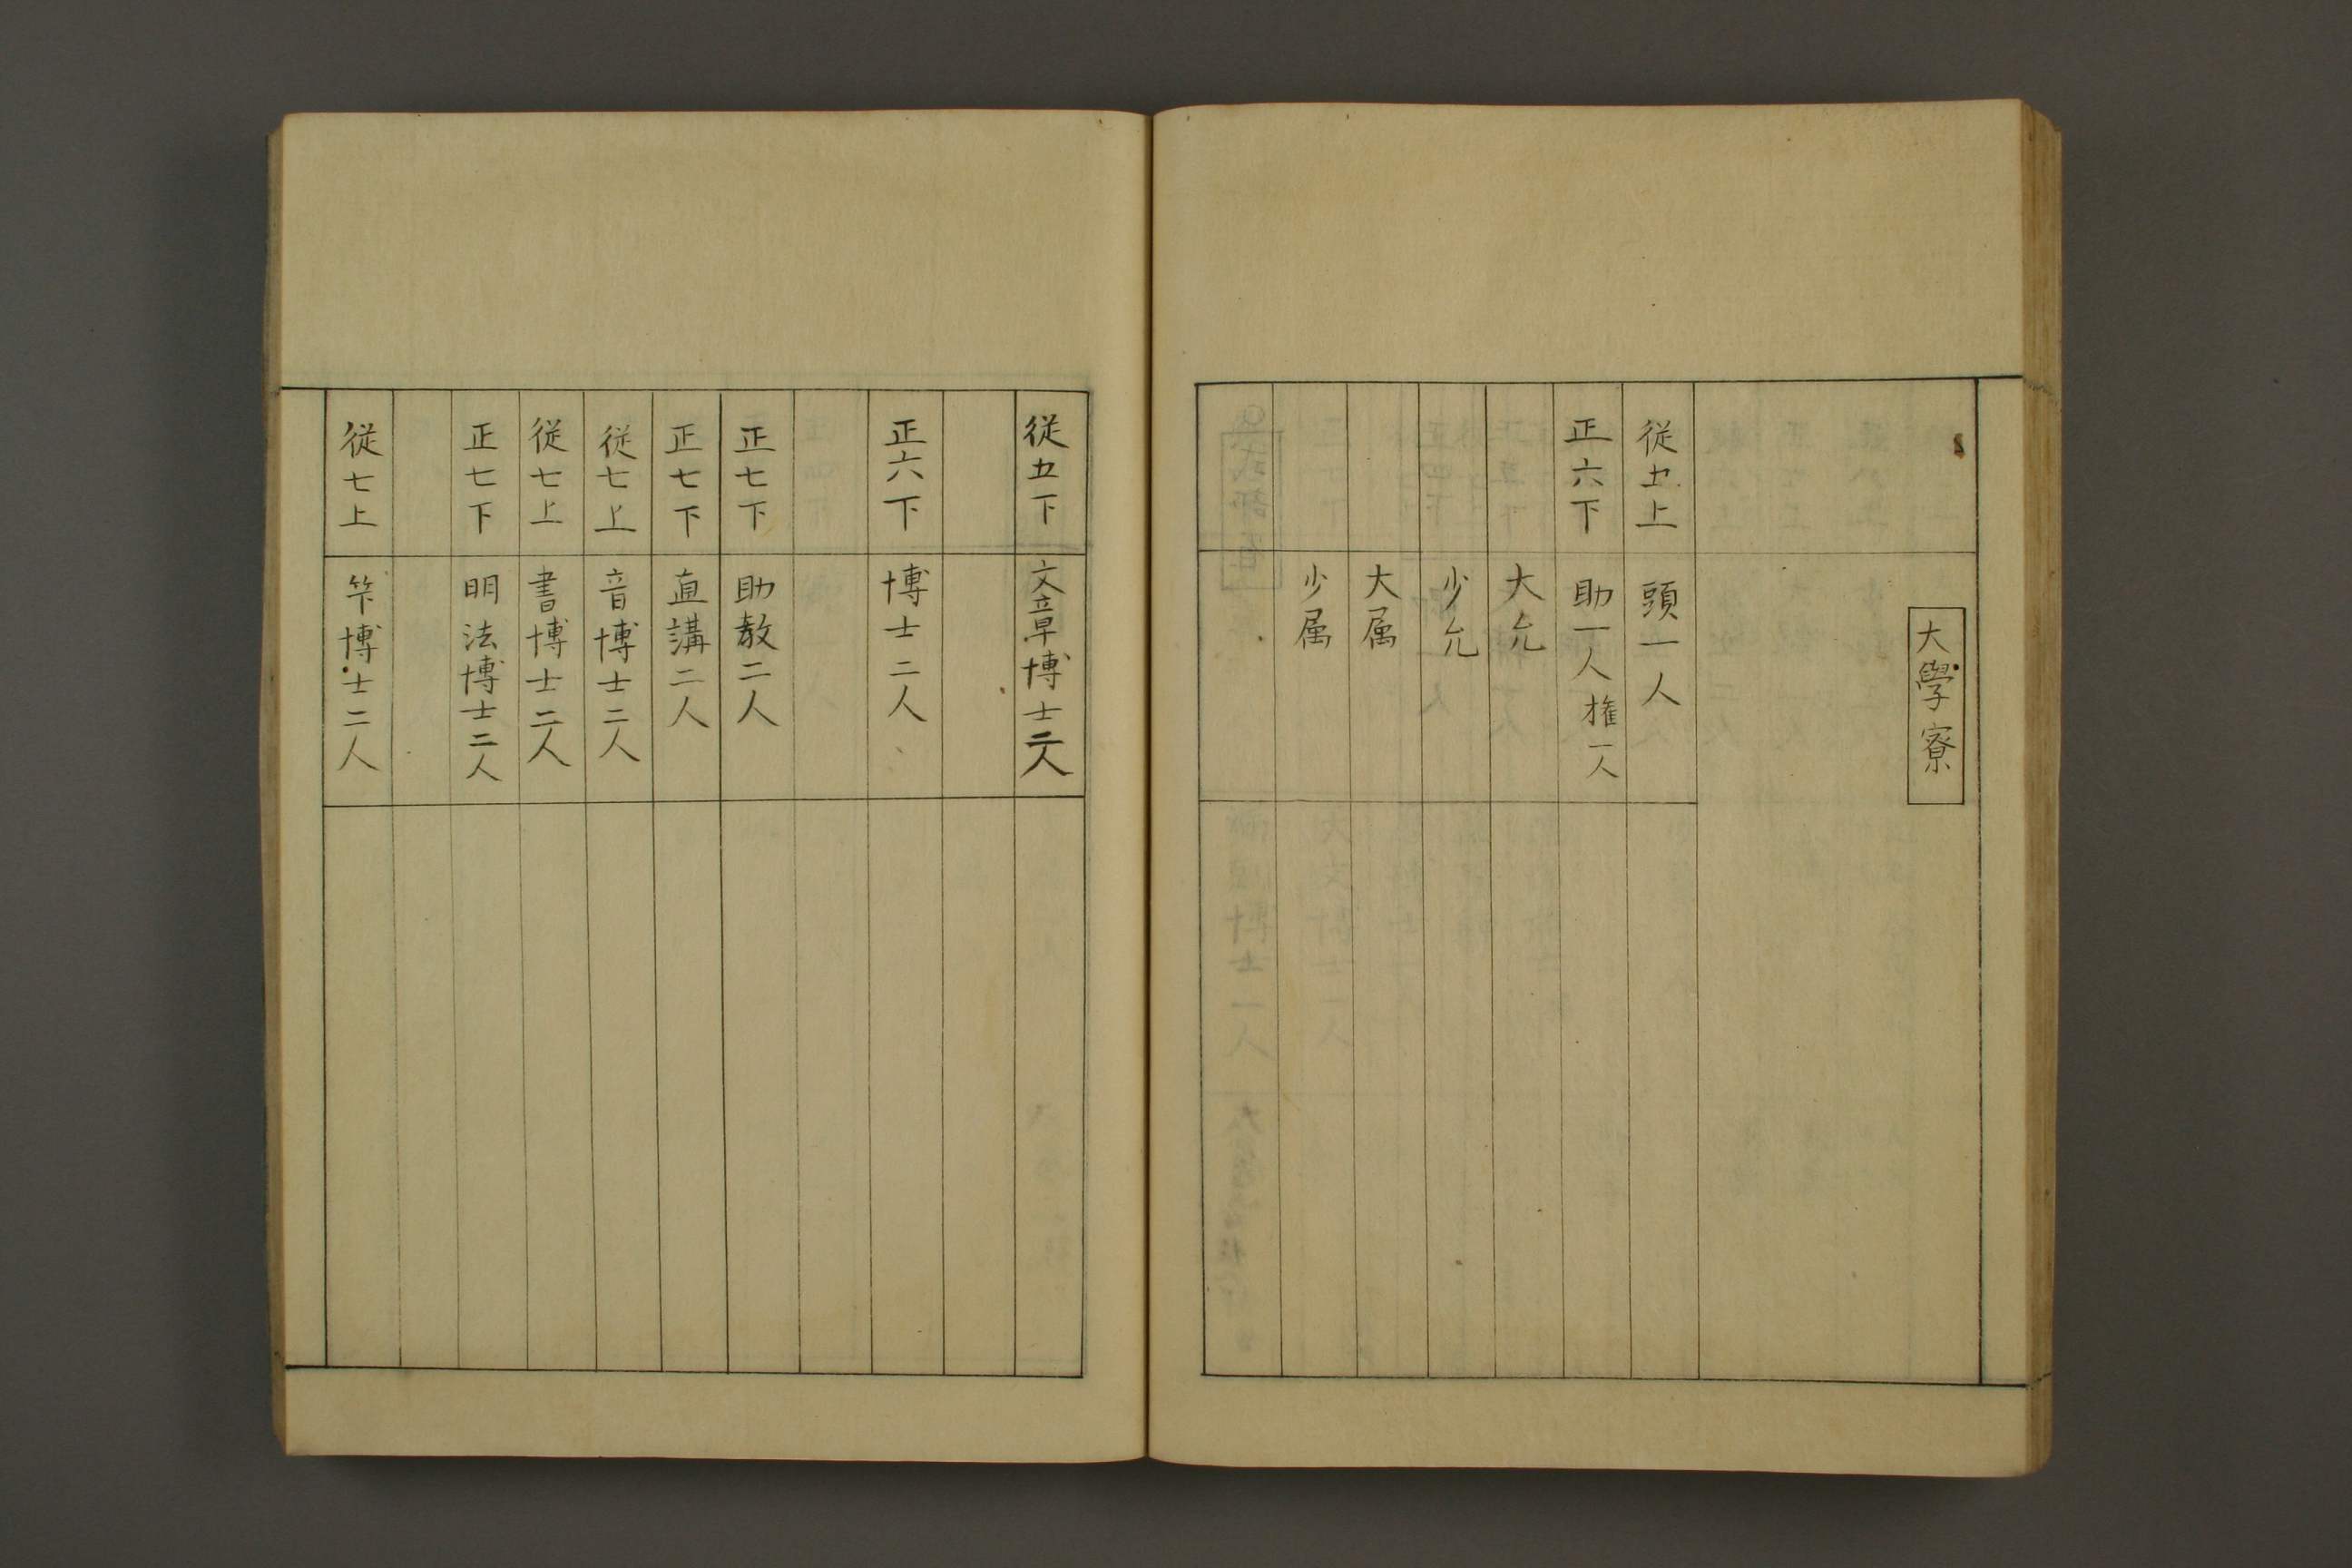 大學寮
從五上 頭一人
正六下 助一人 権一人
大允
少允
大属
少属
從五下 文章博士二人
正六下 博士二人
正七下 助教二人
正七下 直講二人
從七上 音博士二人
從七上 書博士二人
正七下 明法博士二人
從七上 笇博士二人